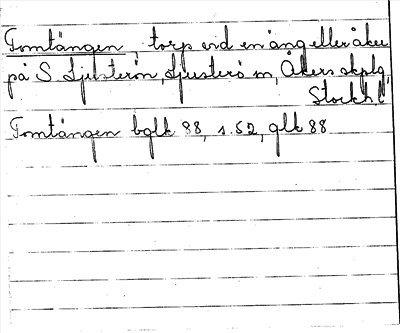 Tomtängen, torp vid en äng eller åker
på S. Ljusterön, Ljusterö sn, Åkers skplg,
Stockh. l.
Tomtängen bglk 88, s. 52, glk 88